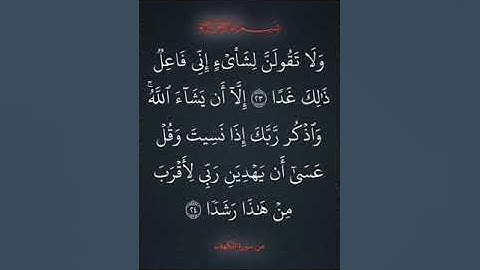 بسم الله الرحمن الرحيم
وَلَا تَقُولَنَّ لِشَا۟ىْءٍ إِنِّى فَاعِلٌ
ذَٰلِكَ غَدًا ٢٣ إِلَّآ أَن يَشَآءَ ٱللَّهُ ۚ
وَٱذْكُر رَّبَّكَ إِذَا نَسِيتَ وَقُلْ
عَسَىٰٓ أَن يَهْدِيَنِ رَبِّى لِأَقْرَبَ
مِنْ هَـٰذَا رَشَدًا ٢٤
من سورة الكهف